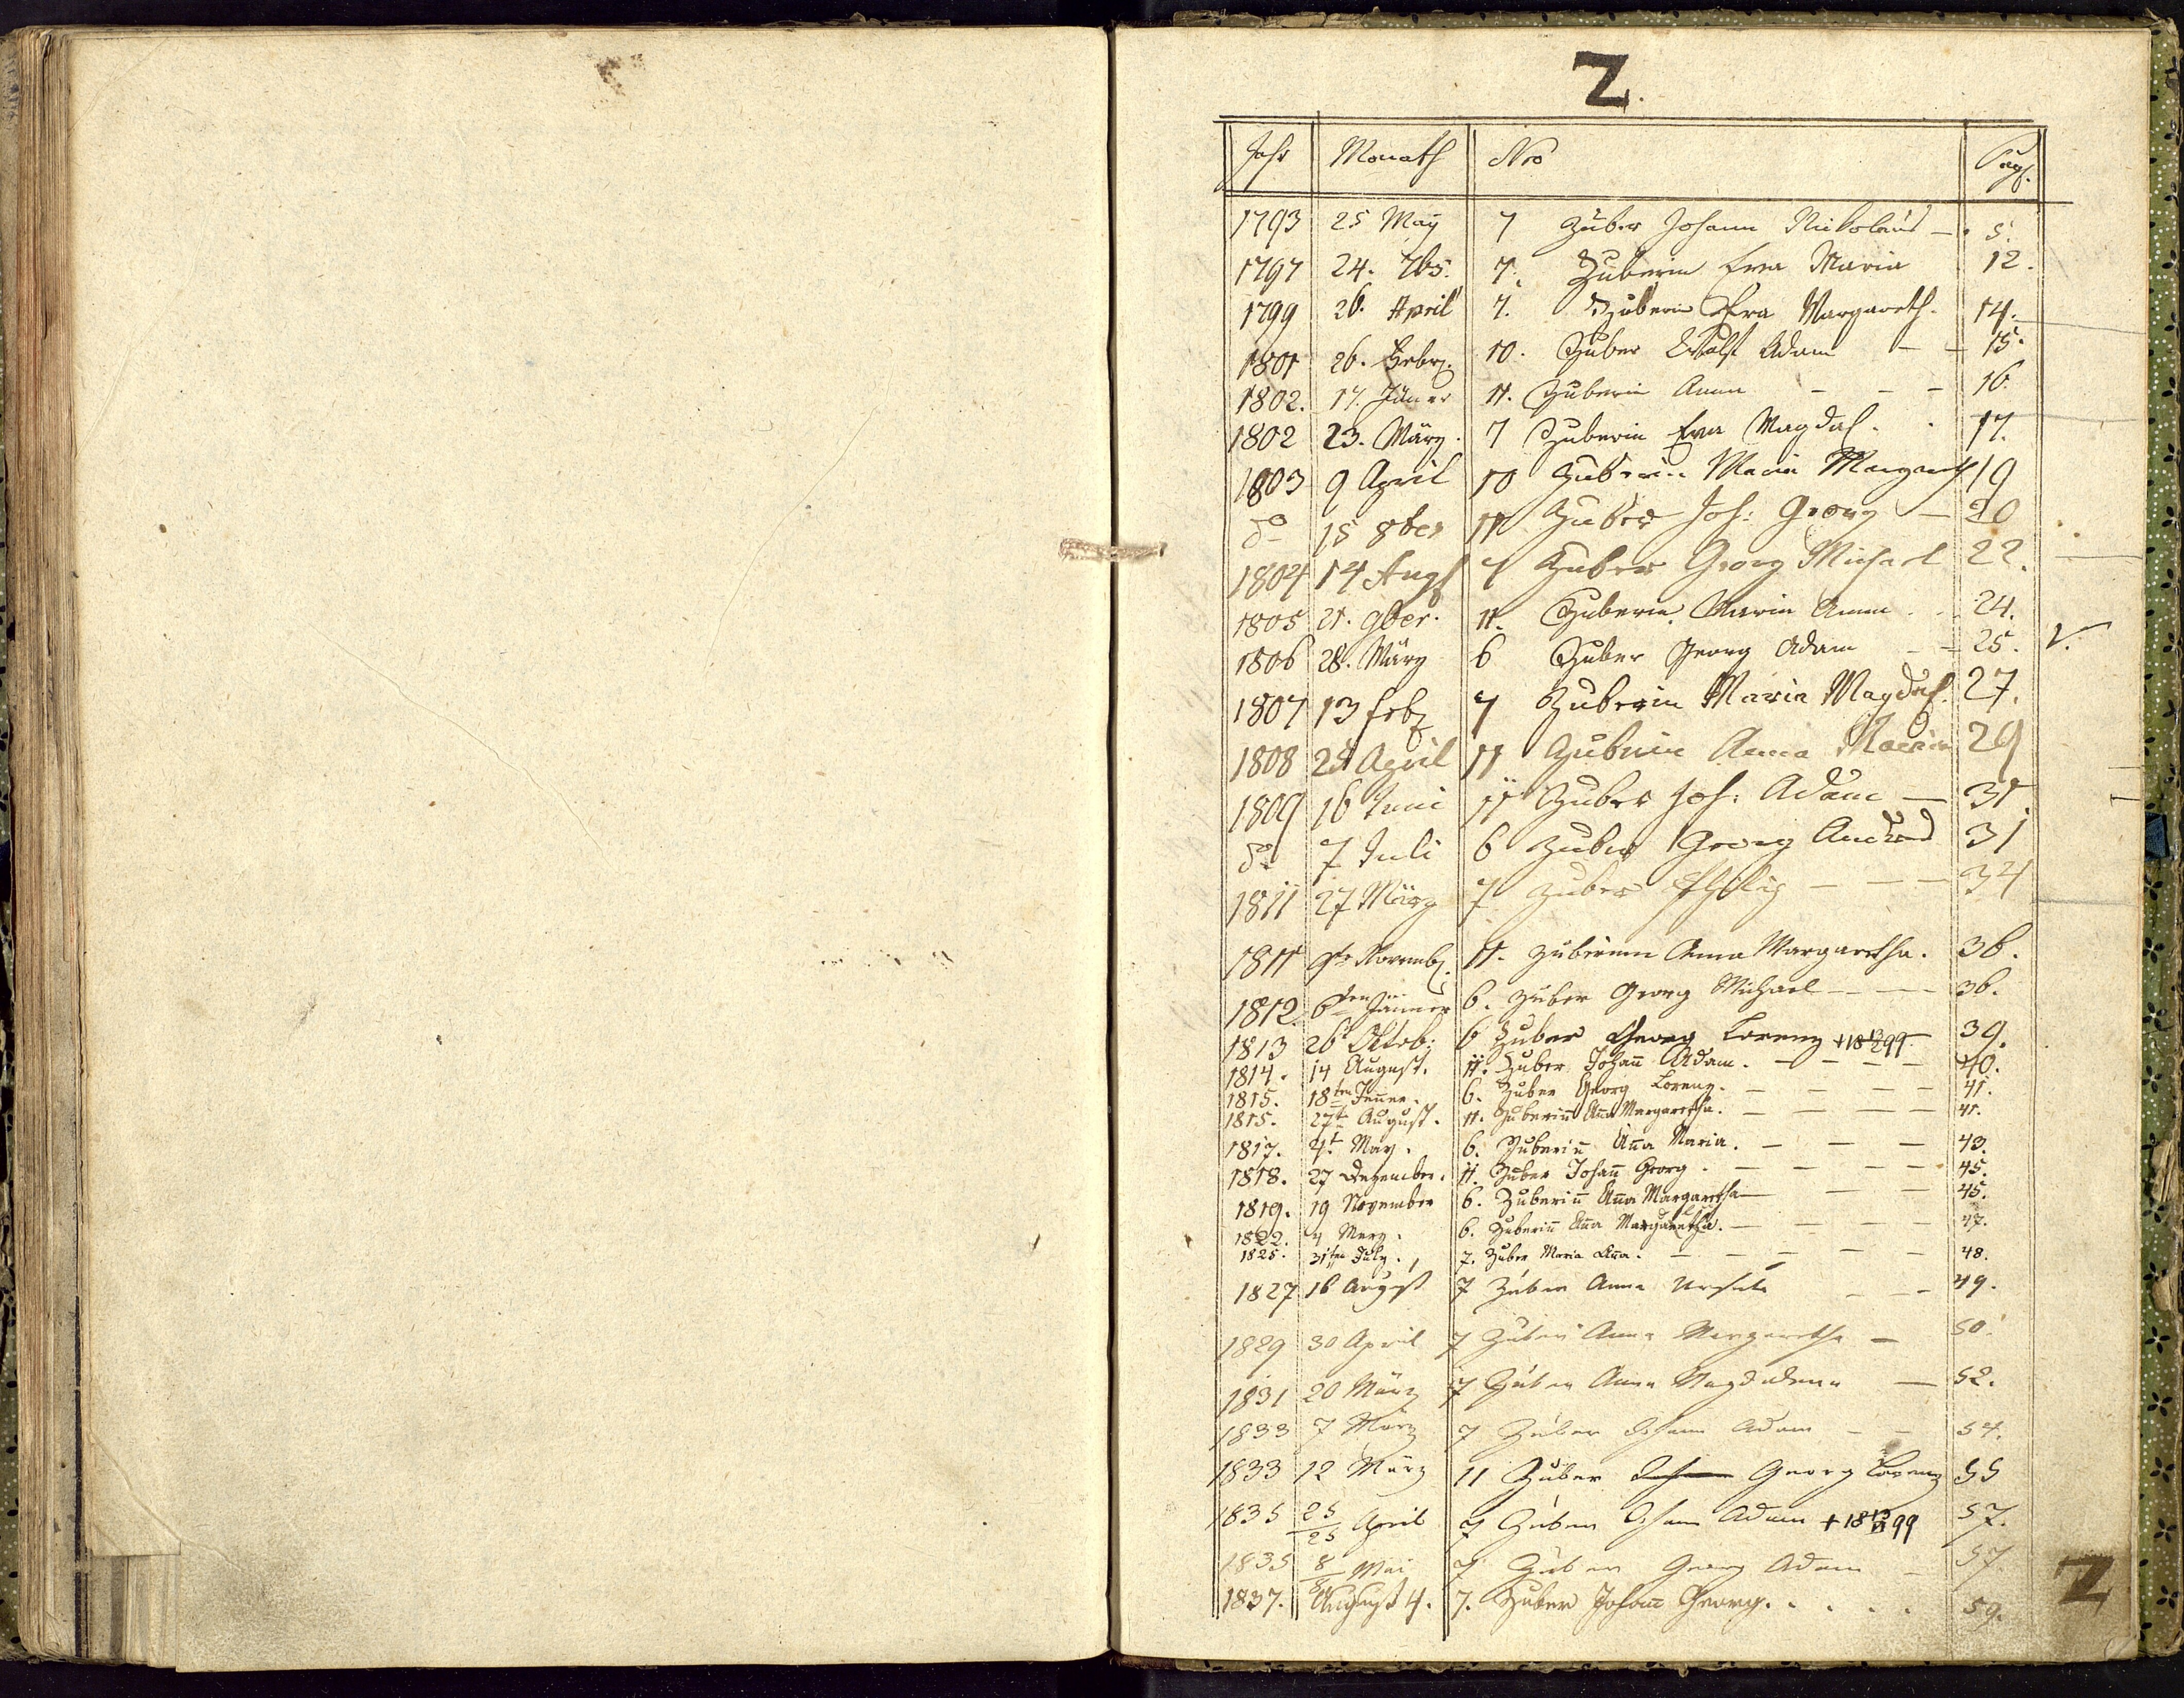 Z.
Jahr Monath Nro Pag.
1793 25 May 7 Zuber Johann Nikolaus – 5.
1797 24. 7br. 7. Zuberin Eva Maria 12.
1799 26. April 7. Zuberin Eva Margareth. 14.
1801 26. Febr. 10. Zuber Wolf Adam – – 15.
1802. 17. Jäner 11. Zuberin Anna – – – 16.
1802 23. März. 7 Zuberin Eva Magdal. . 17.
1803 9 April 10 Zuberin Maria Margareth 19
do 15 8ber 11 Zuber Joh: Georg – 20
1804 14 Aug 7 Zuber Georg Michael 22.
1805 21. 9ber. 11. Zuberin Maria Anna 24.
1806 28. März 6 Zuber Georg Adam – – 25. V.
1807 13 feb 7 Zuberin Maria Magdal. 27.
1808 April 11 Zuberin Anna Maria 29
1809 16 Juni 11 Zuber Joh: Adam – 31.
do 7 Juli 6 Zuber Georg 31
1811 27 März 7 Zuber Philip – – – 34
1811 9te Novemb. 11. Zuberinn Anna Margaretha. 36.
1812. 6ten Jänner 6. Zuber Georg Michael – – – 36.
1813 26t Octob: 6 Zuber Georg Lorenz +18 13/2 99 39.
1814. 14 August. 11. Zuber Johan̄ Adam. – – – – 40.
1815. 18ten Jen̄er. 6. Zuber Georg Lorenz. – – – – 41.
1815. 27t August. 11. Zuberin̄ An̄a Margaretha. – – – – 41.
1817. 4t May. 6. Zuberin̄ An̄a Maria. – – – 43.
1818. 27 Dezember. 11. Zuber Johan̄ Georg. – – – – 45.
1819. 19 November 6. Zuberin̄ An̄a Margaretha – – – 45.
1822. 4 Merz. 6. Zuberin̄ An̄a Margaretha. – – – – 47.
1825. 31ten July. 7. Zuber Maria An̄a. – – – – – 48.
1827 16 August 7 Zuber Anna Ursula – – – 49.
1829 30 April 7 Zuber Anna Margaretha – 50.
1831 20 März 7 Zuber Anna Magdalena – 52.
1833 7 März 7 Zuber Johann Adam – – 54.
1833 12 März 11 Zuber Johann Georg Lorenz 55
1835 25/25 April 7 Zuber Johann Adam + 99 57.
1835 8/8 Mai 7 Zuber Georg Adam – 57
1837. August 4. 7. Zuber Johan̄ Georg. . . . . 59.
Z